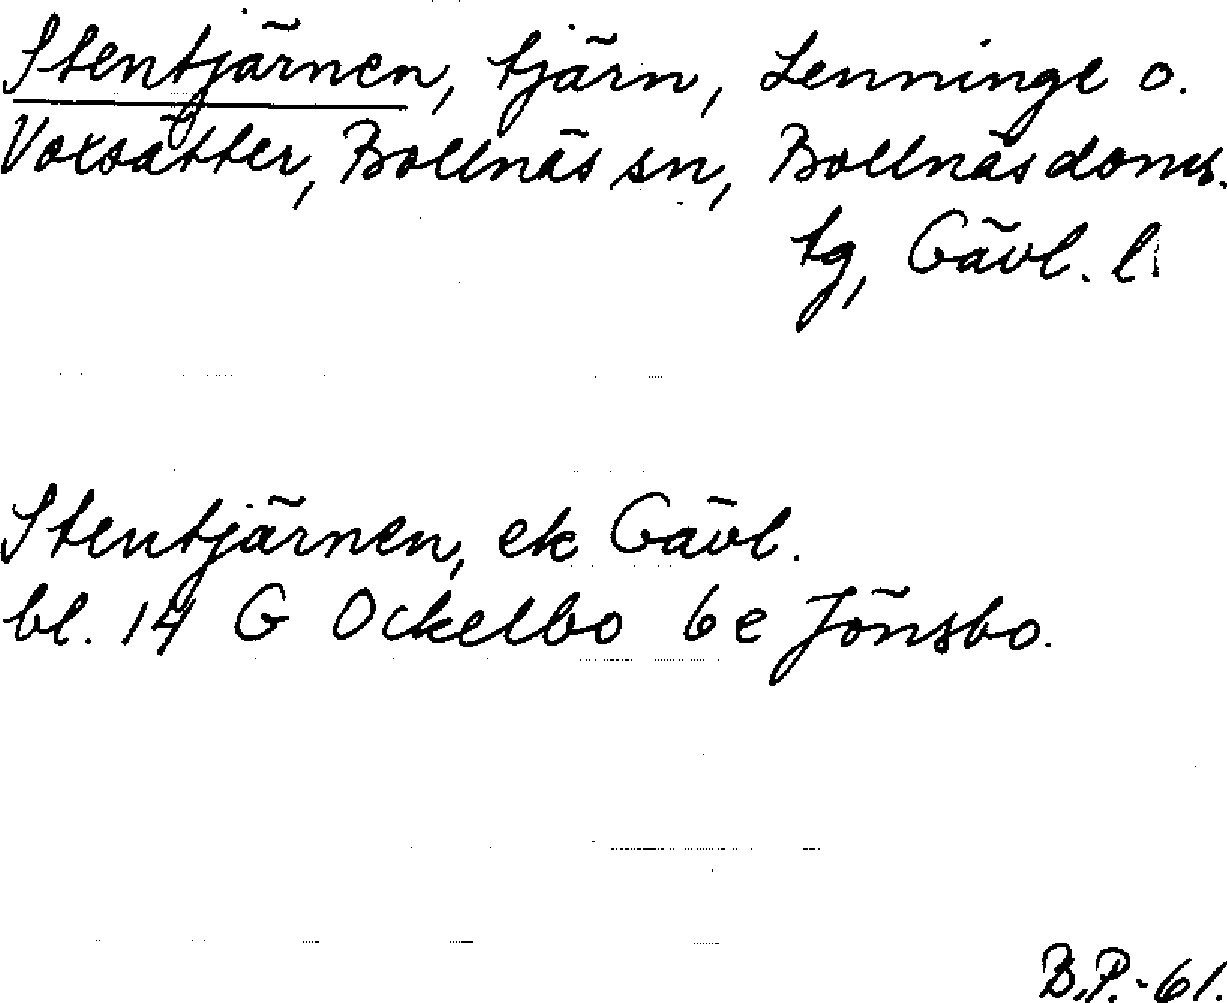 Stentjärnen, tjärn, Lenninge o.
Voxsätter, Bollnäs sn, Bollnäs doms.
tg, Gävl. l.
Stentjärnen, ek Gävl.
bl. 14 G Ockelbo 6 e Jönsbo.
B.P.-61.